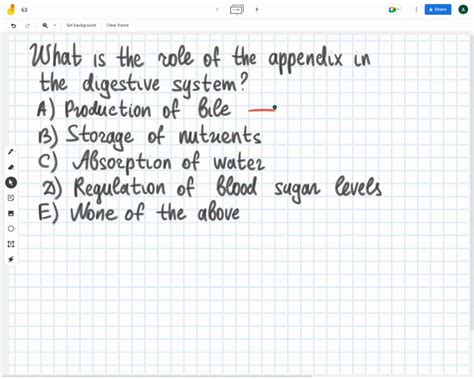 63
Share
A
Set background
Clear frame
What is the role of the appendix in
the digestive system?
A) Production of bile
B) Storage of nutrients
C) Absorption of water
D) Regulation of blood sugar levels
E) None of the above